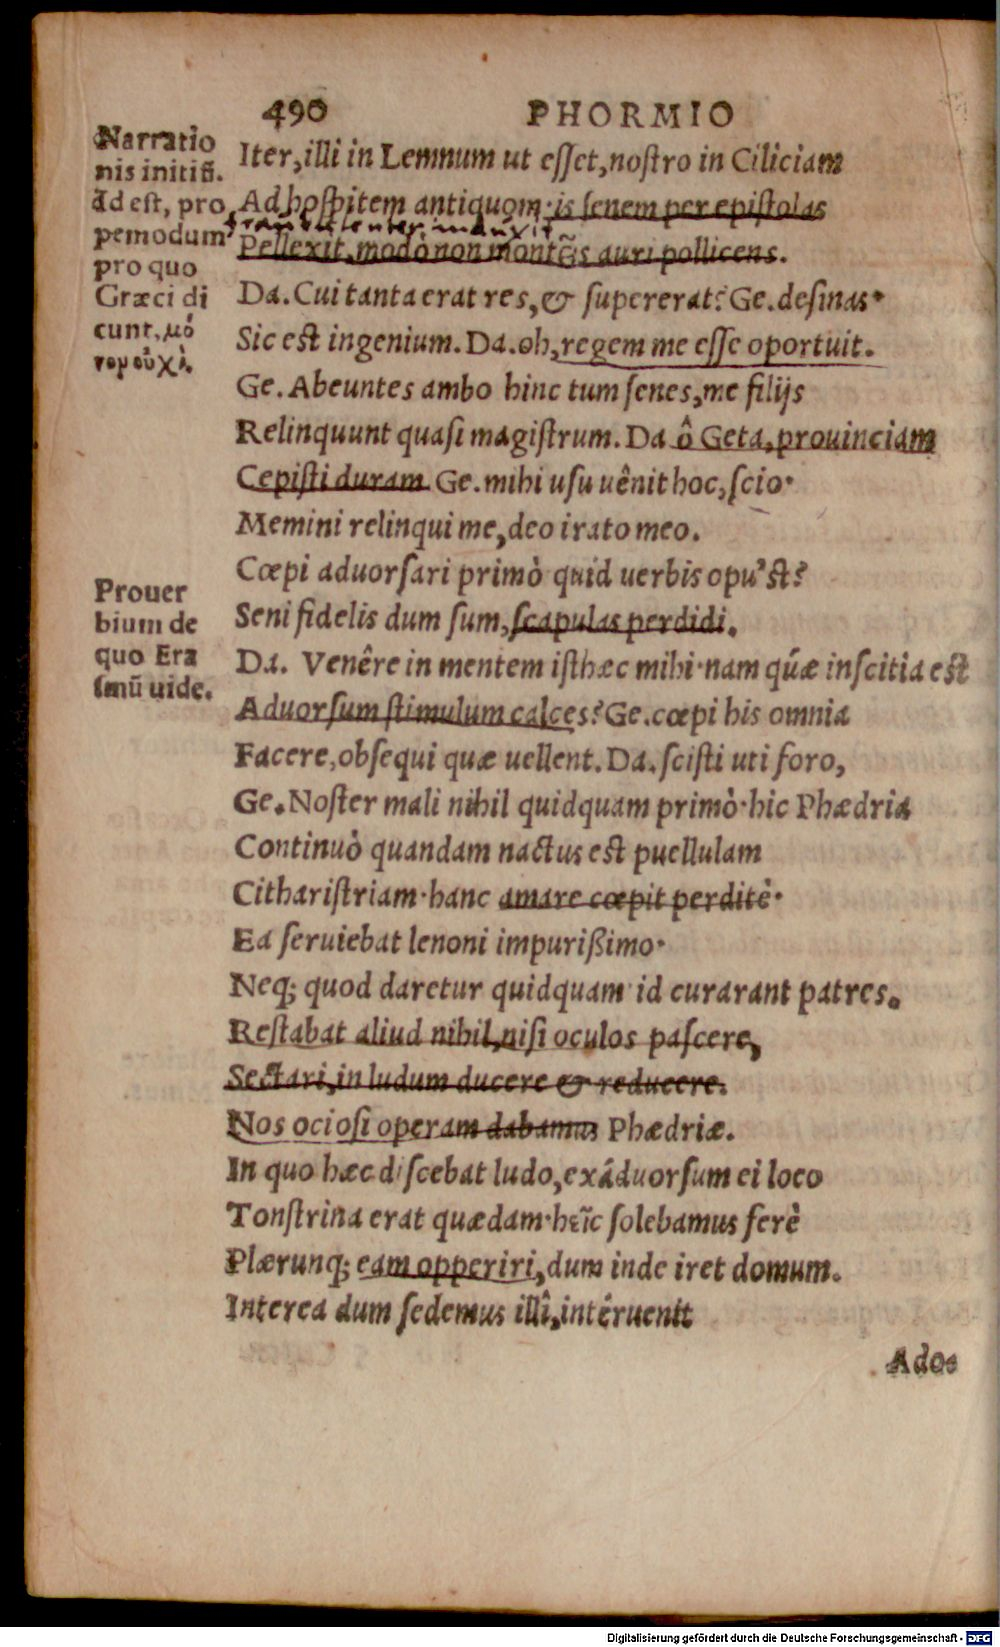 490 PHORMIO
Narratio
nis initiũ.
Id est, pro
pemodum
pro quo
Græci di
cunt, μό
νον οὐχὶ.
Iter, illi in Lemnum ut eſſet, noſtro in Ciliciam
Ad hoſpitem antiquom· is ſenem per epiſtolas
Pellexit, modò non montẽs auri pollicens.
Da. Cui tanta erat res, & ſupererat? Ge. deſinas·
Sic est ingenium. Da. oh, regem me eſſe oportuit.
Ge. Abeuntes ambo hinc tum ſenes, me filijs
Relinquunt quaſi magiſtrum. Da ô Geta, prouinciam
Cepiſti duram Ge. mihi uſu uênit hoc, ſcio·
Memini relinqui me, deo irato meo.
Cœpi aduorſari primò quid uerbis opu'st?
Seni fidelis dum ſum, ſcapulas perdidi.
Prouer
bium de
quo Era
smũ uide.
Da. Venêre in mentem iſthæc mihi· nam quæ inſcitia est
Aduorſum ſtimulum calces? Ge. cœpi his omnia
Facere, obſequi quæ uellent. Da. ſciſti uti foro,
Ge. Noſter mali nihil quidquam primò· hic Phædria
Continuò quandam nactus est puellulam
Cithariſtriam· hanc amare cœpit perditè·
Ea ſeruiebat lenoni impurißimo·
Neq; quod daretur quidquam id curarant patres.
Reſtabat aliud nihil, niſi oculos paſcere,
Sectari, in ludum ducere & reducere.
Nos ocioſi operam dabamus Phædriæ.
In quo hæc diſcebat ludo, exáduorſum ei loco
Tonſtrina erat quædam· hîc ſolebamus ferè
Plærunq; eam opperiri, dum inde iret domum.
Interea dum ſedemus illî, intéruenit
Ados
Digitalisierung gefördert durch die Deutsche Forschungsgemeinschaft · DFG